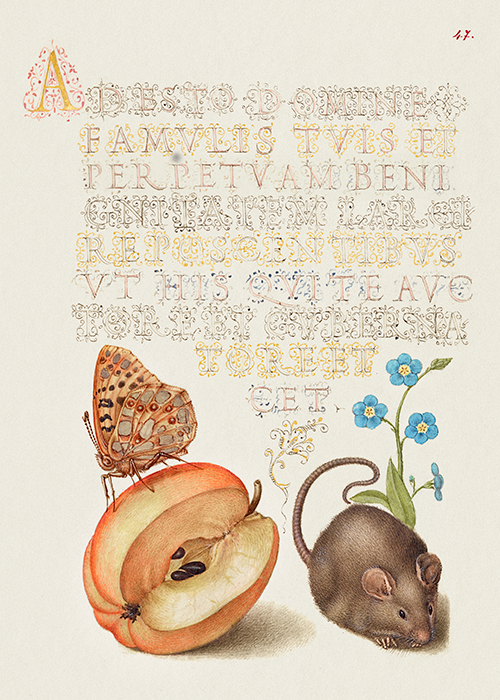 47.
ADESTO DOMINE
FAMVLIS TVIS ET
PERPETVAM BENI
GNITATEM LARGI
RE POSCENTIBVS
VT HIS QVI TE AVC
TORE ET GVBERNA
TORE ET
CET.